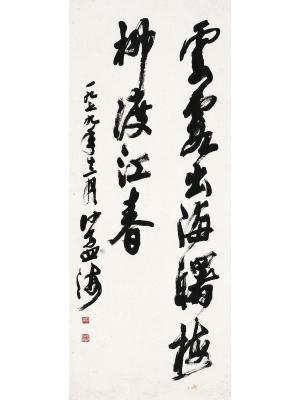 雲霞出海曙梅
柳渡江春
一九七九年 月沙孟海